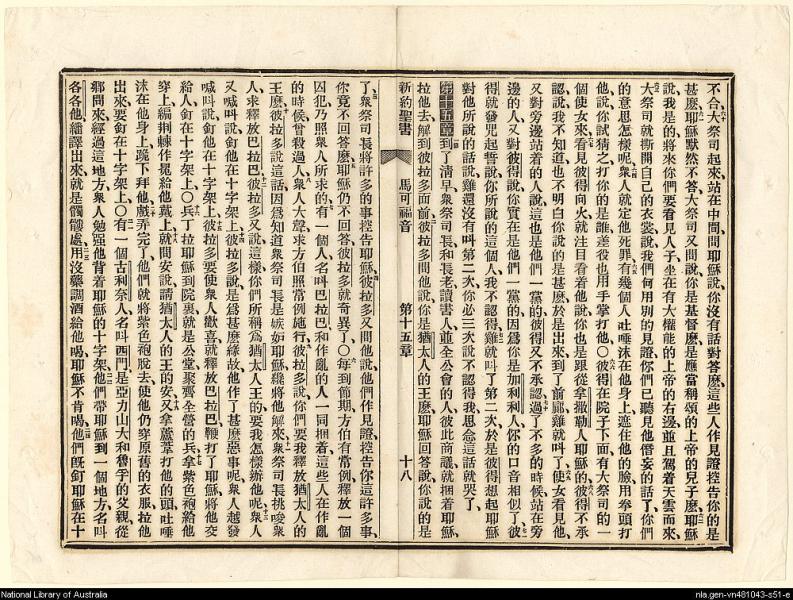 不合大祭司起來站在中間問耶穌說你沒有話對答麼這些人作見證控告你的是
甚麼耶穌默然不答大祭司又問說你是基督麼是應當稱頌的上帝的兒子麼耶穌
說我是的將來你們要看見人子坐在有大權能的上帝的右邊並且駕着天雲而來
大祭司就撕開自己的衣裳說我們何用別的見證你們已聽見他僭妄的話了你們
的意思怎樣呢衆人就定他死罪有幾個人吐唾沫在他身上遮住他的臉用拳頭打
他說你試猜之打你的是誰差役也用手掌打他〇彼得在院子下面有大祭司的一
個使女來看見彼得向火就注目看着他說你也是跟從拿撒勒人耶穌的彼得不承
認說我不知道也不明白你說的是甚麼於是出來到了前廊雞就叫了使女看見他
又對旁邊站着的人說這也是他們一黨的彼得又不承認過了不多的時候站在旁
邊的人又對彼得說你實在是他們一黨的因爲你是加利利人你的口音相似了彼
得就發咒起誓說你所說的這個人我不認得雞就叫了第二次於是彼得想起耶穌
對他所說的話說雞還沒有叫第二次你必三次說不認得我思念這話就哭了
第十五章到了淸早衆祭司長和長老讀書人並全公會的人彼此商議就捆着耶穌
拉他去解到彼拉多面前彼拉多問他說你是猶太人的王麼耶穌回答說你說的是
新約聖書 馬可福音 第十五章 十八
了衆祭司長將許多的事控告耶穌彼拉多又問他說他們作見證控告你這許多事
你竟不回答麼耶穌仍不回答彼拉多就奇異了〇每到節期方伯有常例釋放一個
囚犯乃照衆人所求的有一個人名叫巴拉巴和作亂的人一同捆着這些人在作亂
的時候曾殺過人衆人大聲求方伯照常例施行彼拉多說你們要我釋放猶太人的
王麼彼拉多說這話因爲知道衆祭司長是嫉妒耶穌纔將他解來衆祭司長挑唆衆
人求釋放巴拉巴彼拉多又說這樣你們所稱爲猶太人王的要我怎樣辦他呢衆人
又喊叫說釘他在十字架上彼拉多說是爲甚麼緣故他作了甚麼惡事呢衆人越發
喊叫說釘他在十字架上彼拉多要使衆人歡喜就釋放巴拉巴鞭打了耶穌將他交
給人釘在十字架上〇兵丁拉耶穌到院裏就是公堂聚齊全營的兵拿紫色袍給他
穿上編荊棘作冕給他戴上就問安說請猶太人的王的安又拿蘆葦打他的頭吐唾
沫在他身上跪下拜他戲弄完了他們就將紫色袍脫去使他仍穿原舊的衣服拉他
出來要釘在十字架上〇有一個古利奈人名叫西門是亞力山大和魯孚的父親從
鄉間來經過這地方衆人勉强他背着耶穌的十字架他們帶耶穌到一個地方名叫
各各他繙譯出來就是髑髏處用沒藥調酒給他喝耶穌不肯喝他們旣釘耶穌在十
National Library of Australia
nla.gen-vn481043-s51-e